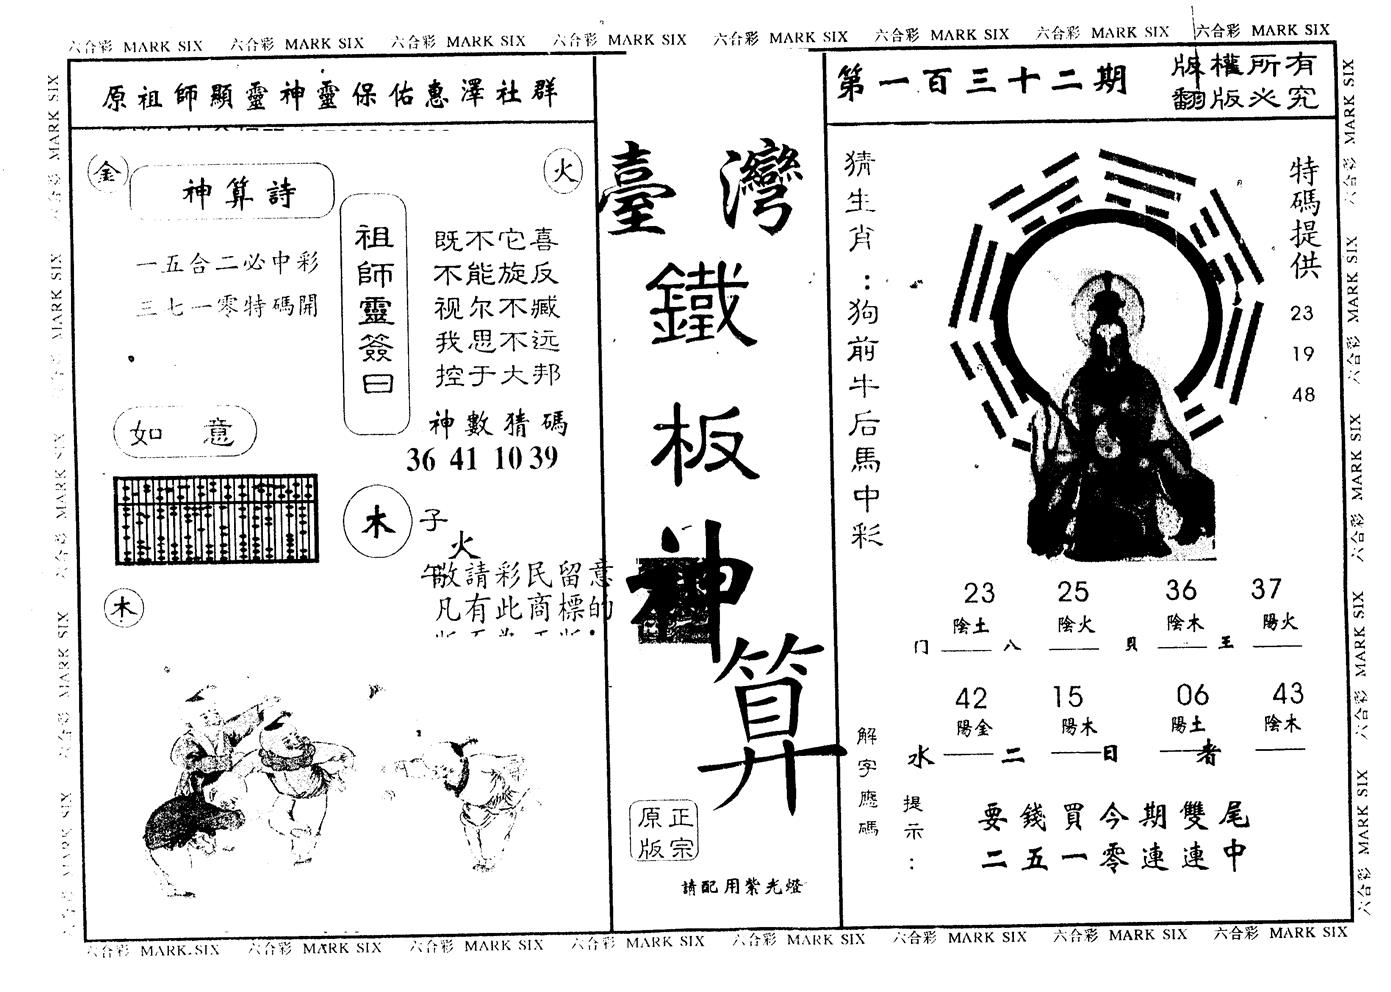 六合彩 MARK SIX 六合彩 MARK SIX 六合彩 MARK SIX 六合彩 MARK SIX 六合彩 MARK SIX 六合彩 MARK SIX 六合彩 MARK SIX 六合彩 MARK SIX
原祖師顯靈神靈保佑惠澤社群
金
火
神算詩
一五合二必中彩
三七一零特碼開
祖師靈簽曰
既不它喜
不能旋反
视尔不臧
我思不远
控于大邦
神數猜碼
36 41 10 39
如 意
木 子
火
午
敬請彩民留意
凡有此商標的
木
臺灣
鐵
板
神
算
正宗
原版
請配用紫光燈
第一百三十二期
版權所有
翻版必究
猜生肖：狗前牛后馬中彩
特碼提供
23
19
48
23 25 36 37
陰土 陰火 陰木 陽火
门 八 貝 王
42 15 06 43
陽金 陽木 陽土 陰木
水 二 日 者
解字應碼
提示：
要錢買今期雙尾
二五一零連連中
六合彩 MARK SIX 六合彩 MARK SIX 六合彩 MARK SIX 六合彩 MARK SIX 六合彩 MARK SIX 六合彩 MARK SIX 六合彩 MARK SIX 六合彩 MARK SIX